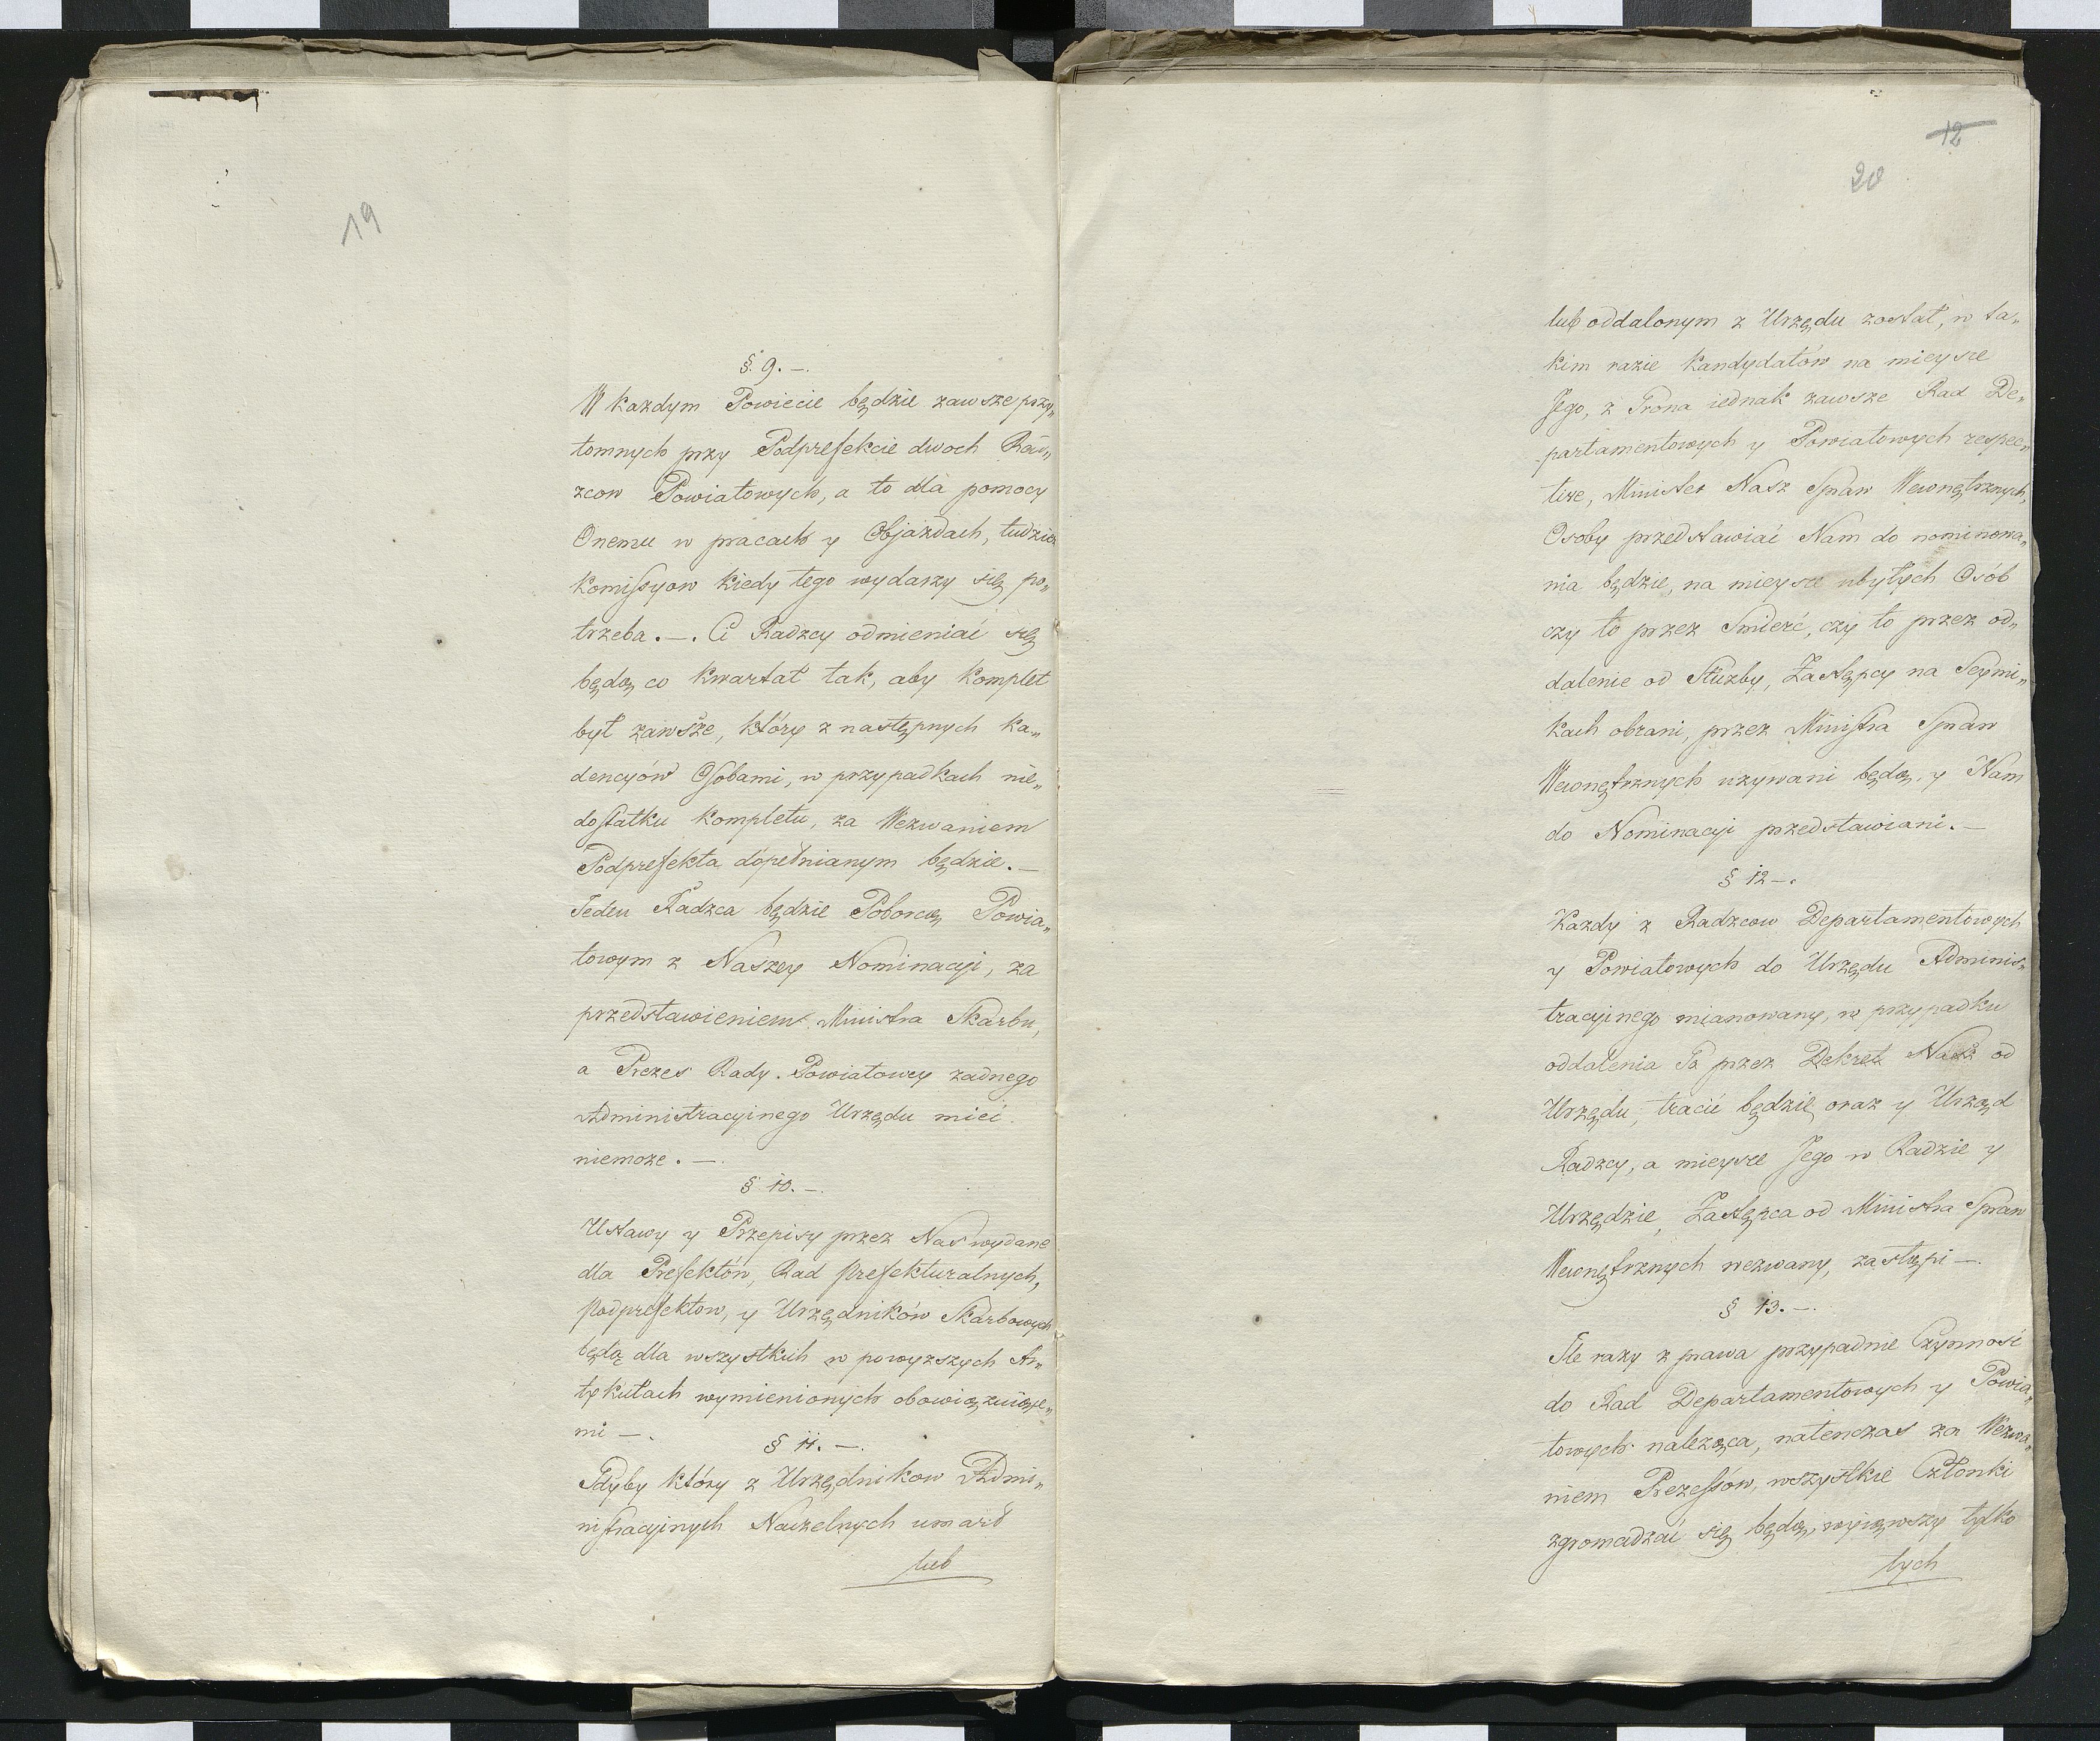 19
§. 9. —.
W kazdym Powiecie będzie zawsze przy„
tomnych przy Podprefekcie dwoch Rad„
zcow Powiatowych, a to dla pomocy
Onemu w pracach y Objazdach, tudzież
Komissyow kiedy tego wydarzy się po„
trzeba. —. Ci Radzcy odmieniać się
będą co kwartał tak, aby Komplet
był zawsze, który z następnych Ka„
dencyów Osobami, w przypadkach nie„
dostatku Kompletu, za Wezwaniem
Podprefekta dopełnianym będzie. —
Jeden Radzca będzie Poborcą Powia„
towym z Naszey Nominacyi, za
przedstawieniem Ministra Skarbu,
a Prezes Rady Powiatowey zadnego
Administracyinego Urzędu mieć
niemoze. —.
§ 10. —.
Ustawy y Przepisy przez Nas wydane
dla Prefektów, Rad Prefekturalnych,
Podprefektow, y Urzędników Skarbowych
będą dla wszystkich w powyzszych Ar„
tykułach wymienionych obowiązuiące„
mi —.
§ 11. —.
Gdyby który z Urzędnikow Admi„
nistracyinych Naczelnych umarł
lub
12
20
lub oddalonym z Urzędu został, w ta„
kim razie Kandydatów na mieysce
Jego, z Grona iednak zawsze Rad De„
partamentowych y Powiatowych respec„
tive, Minister Nasz Spraw Wewnętrznych,
Osoby przedstawiać Nam do nominowa„
nia będzie, na mieysce ubyłych Osób
czy to przez Smierć, czy to przez od„
dalenie od Służby, Zastępcy na Seymi„
kach obrani, przez Ministra Spraw
Wewnętrznych uzywani będą, y Nam
do Nominacyi przedstawiani. —
§ 12 —.
Kazdy z Radzcow Departamentowych
y Powiatowych do Urzędu Adminis„
tracyinego mianowany, w przypadku
oddalenia Go przez Dekret Nasz od
Urzędu, tracić będzie oraz y Urząd
Radzcy, a mieysce Jego w Radzie y
Urzędzie, Zastępca od Ministra Spraw
Wewnętrznych wezwany, zastąpi —.
§ 13. —.
Ile razy z prawa przypadnie Czynność
do Rad Departamentowych y Powia„
towych naleząca, natenczas za Wezwa„
niem Prezessów, wszystkie Członki
zgromadzać się będą, wyiąwszy tylko
tych